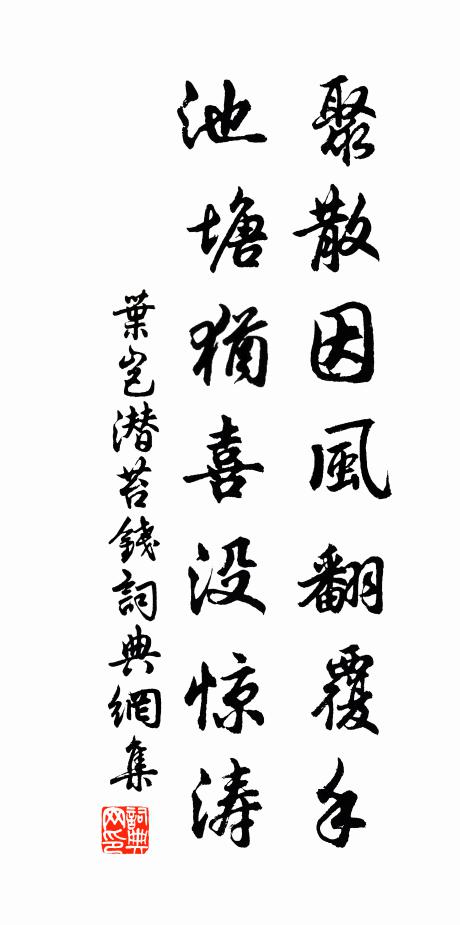 聚散因風翻覆手
池塘猶喜没惊涛
葉岂潜苔錢詞典網集
詞典
网印